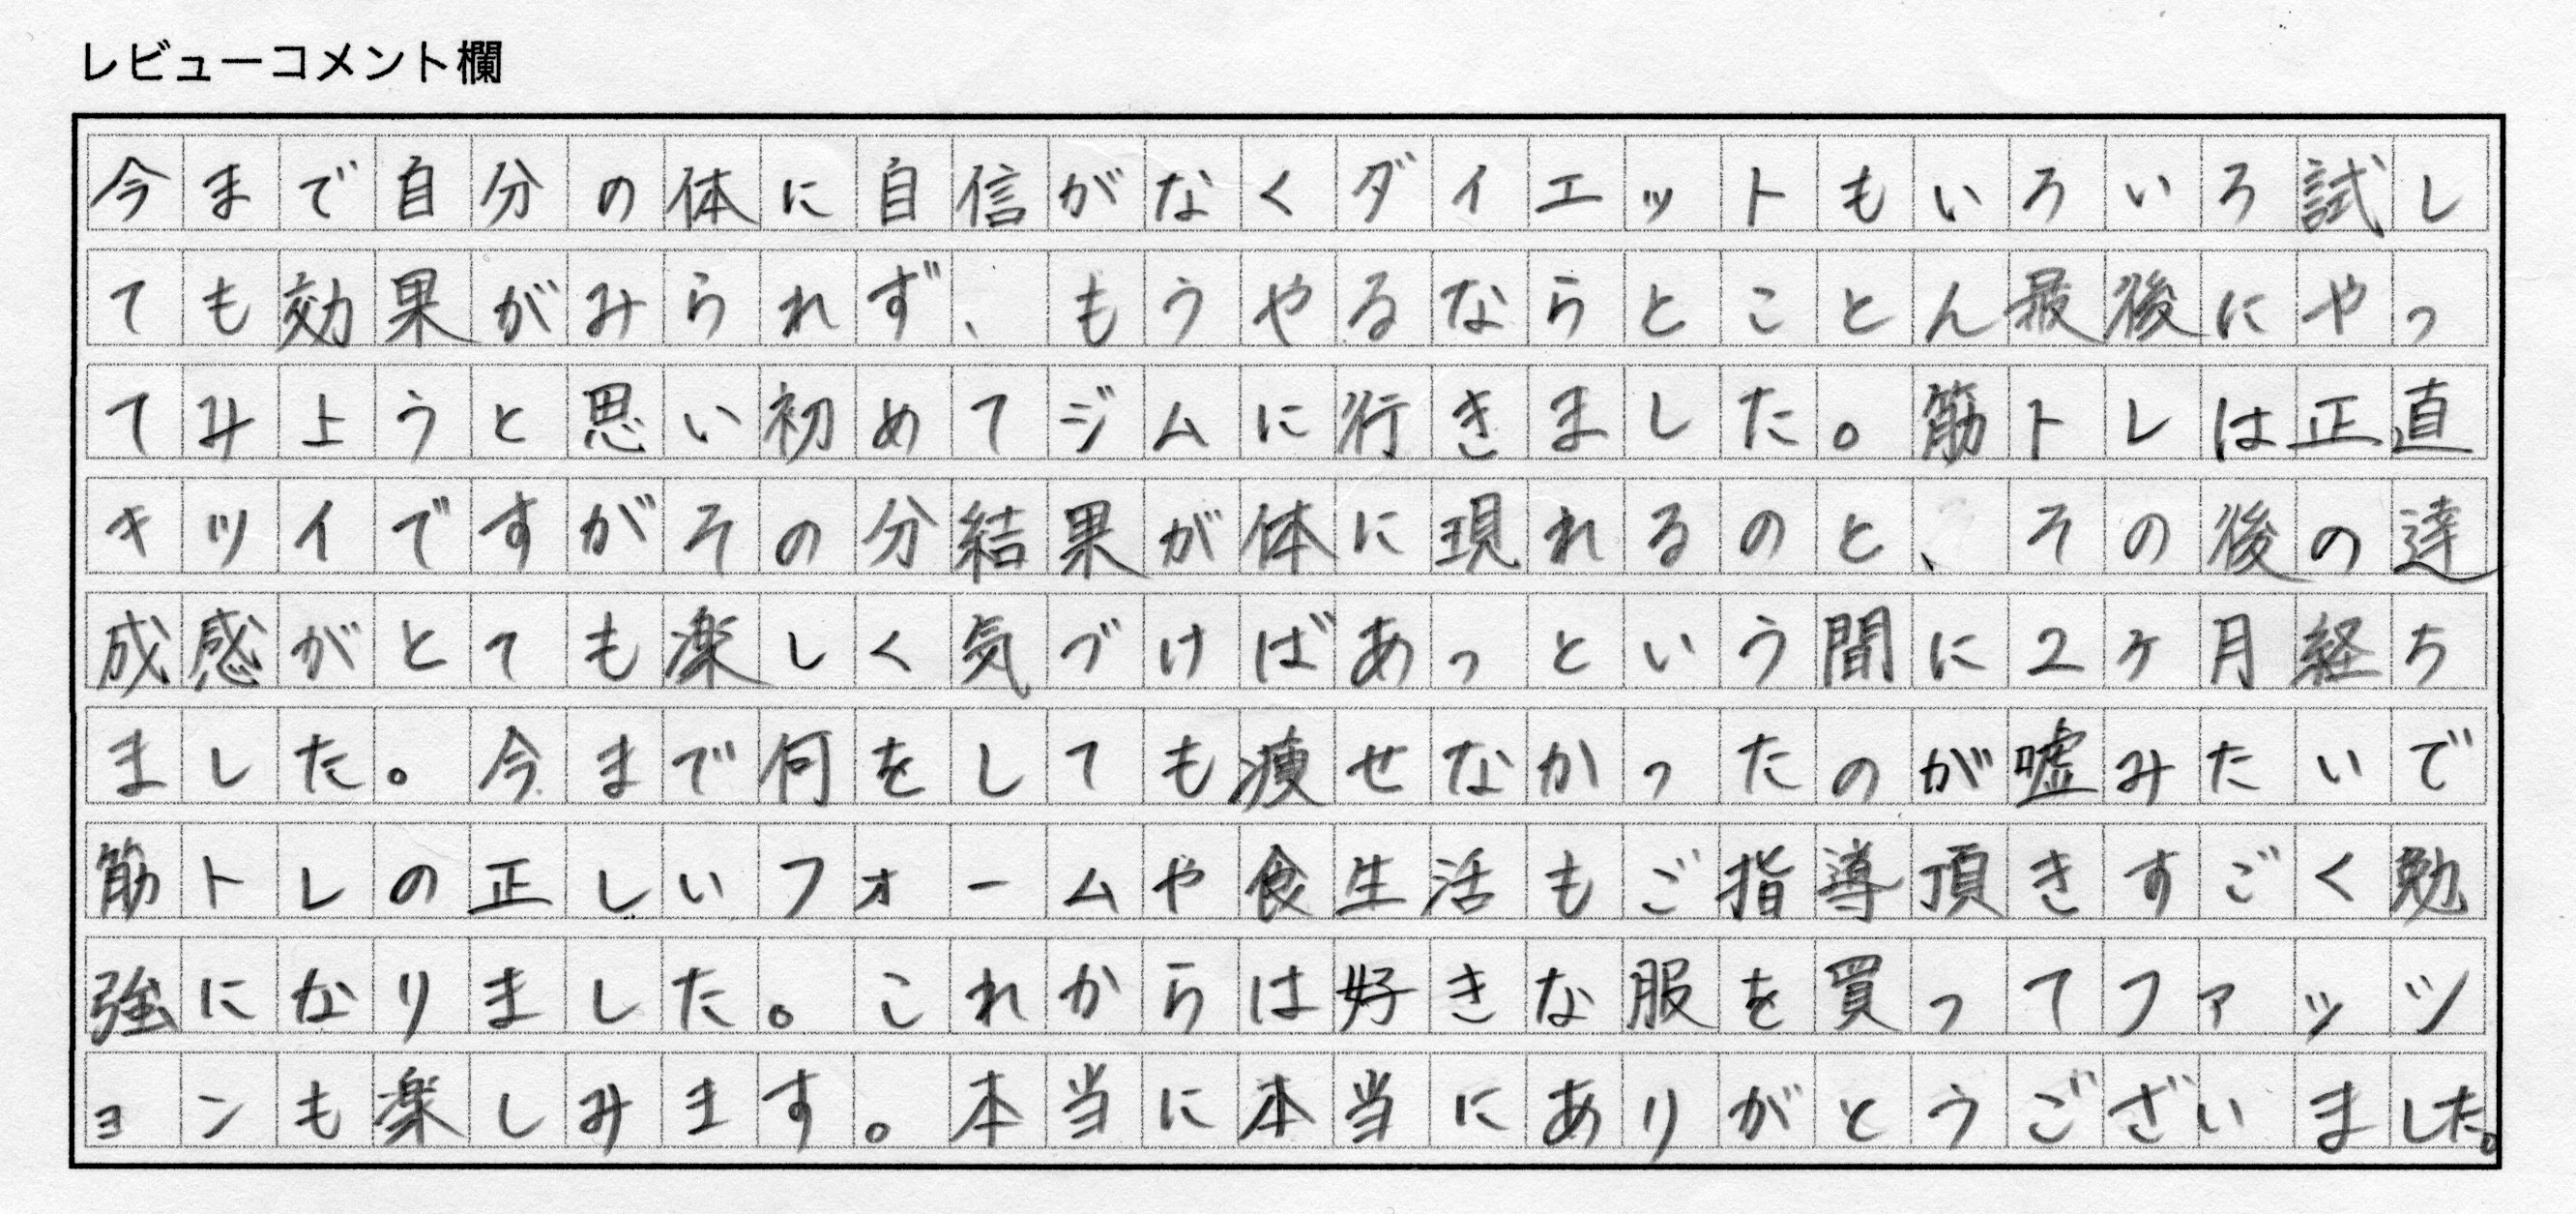 レビューコメント欄
今まで自分の体に自信がなくダイエットもいろいろ試し
ても効果がみられず、もうやるならとことん最後にやっ
てみようと思い初めてジムに行きました。筋トレは正直
キツイですがその分結果が体に現れるのと、その後の達
成感がとても楽しく気づけばあっという間に2ヶ月経ち
ました。今まで何をしても痩せなかったのが嘘みたいで
筋トレの正しいフォームや食生活もご指導頂きすごく勉
強になりました。これからは好きな服を買ってファッツ
ョンも楽しみます。本当に本当にありがとうございました。